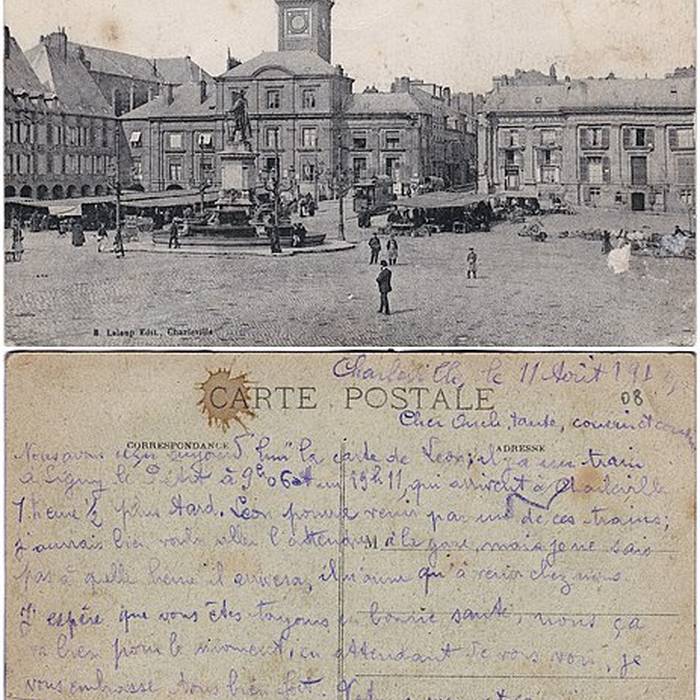 B. Leloup Edit., Charleville
Charleville, le 11 Août 191
CARTE POSTALE
08
Cher Oncle, tante, cousin et
CORRESPONDANCE
ADRESSE
Nous avons reçu aujourd'hui la carte de Léon; il y a un train
à Signy le Petit à 9h06 et un 19h11, qui arrivent à Charleville
1 heure ½ plus tard. Léon pourra venir par un de ces trains;
j'aurais bien voulu aller l'attendre à la gare, mais je ne sais
M
pas à quelle heure il arrivera, il n'aura qu'à venir chez nous.
J'espère que vous êtes toujours en bonne santé, nous ça
va bien pour le moment, en attendant de vous voir, je
vous embrasse tous bien fort.